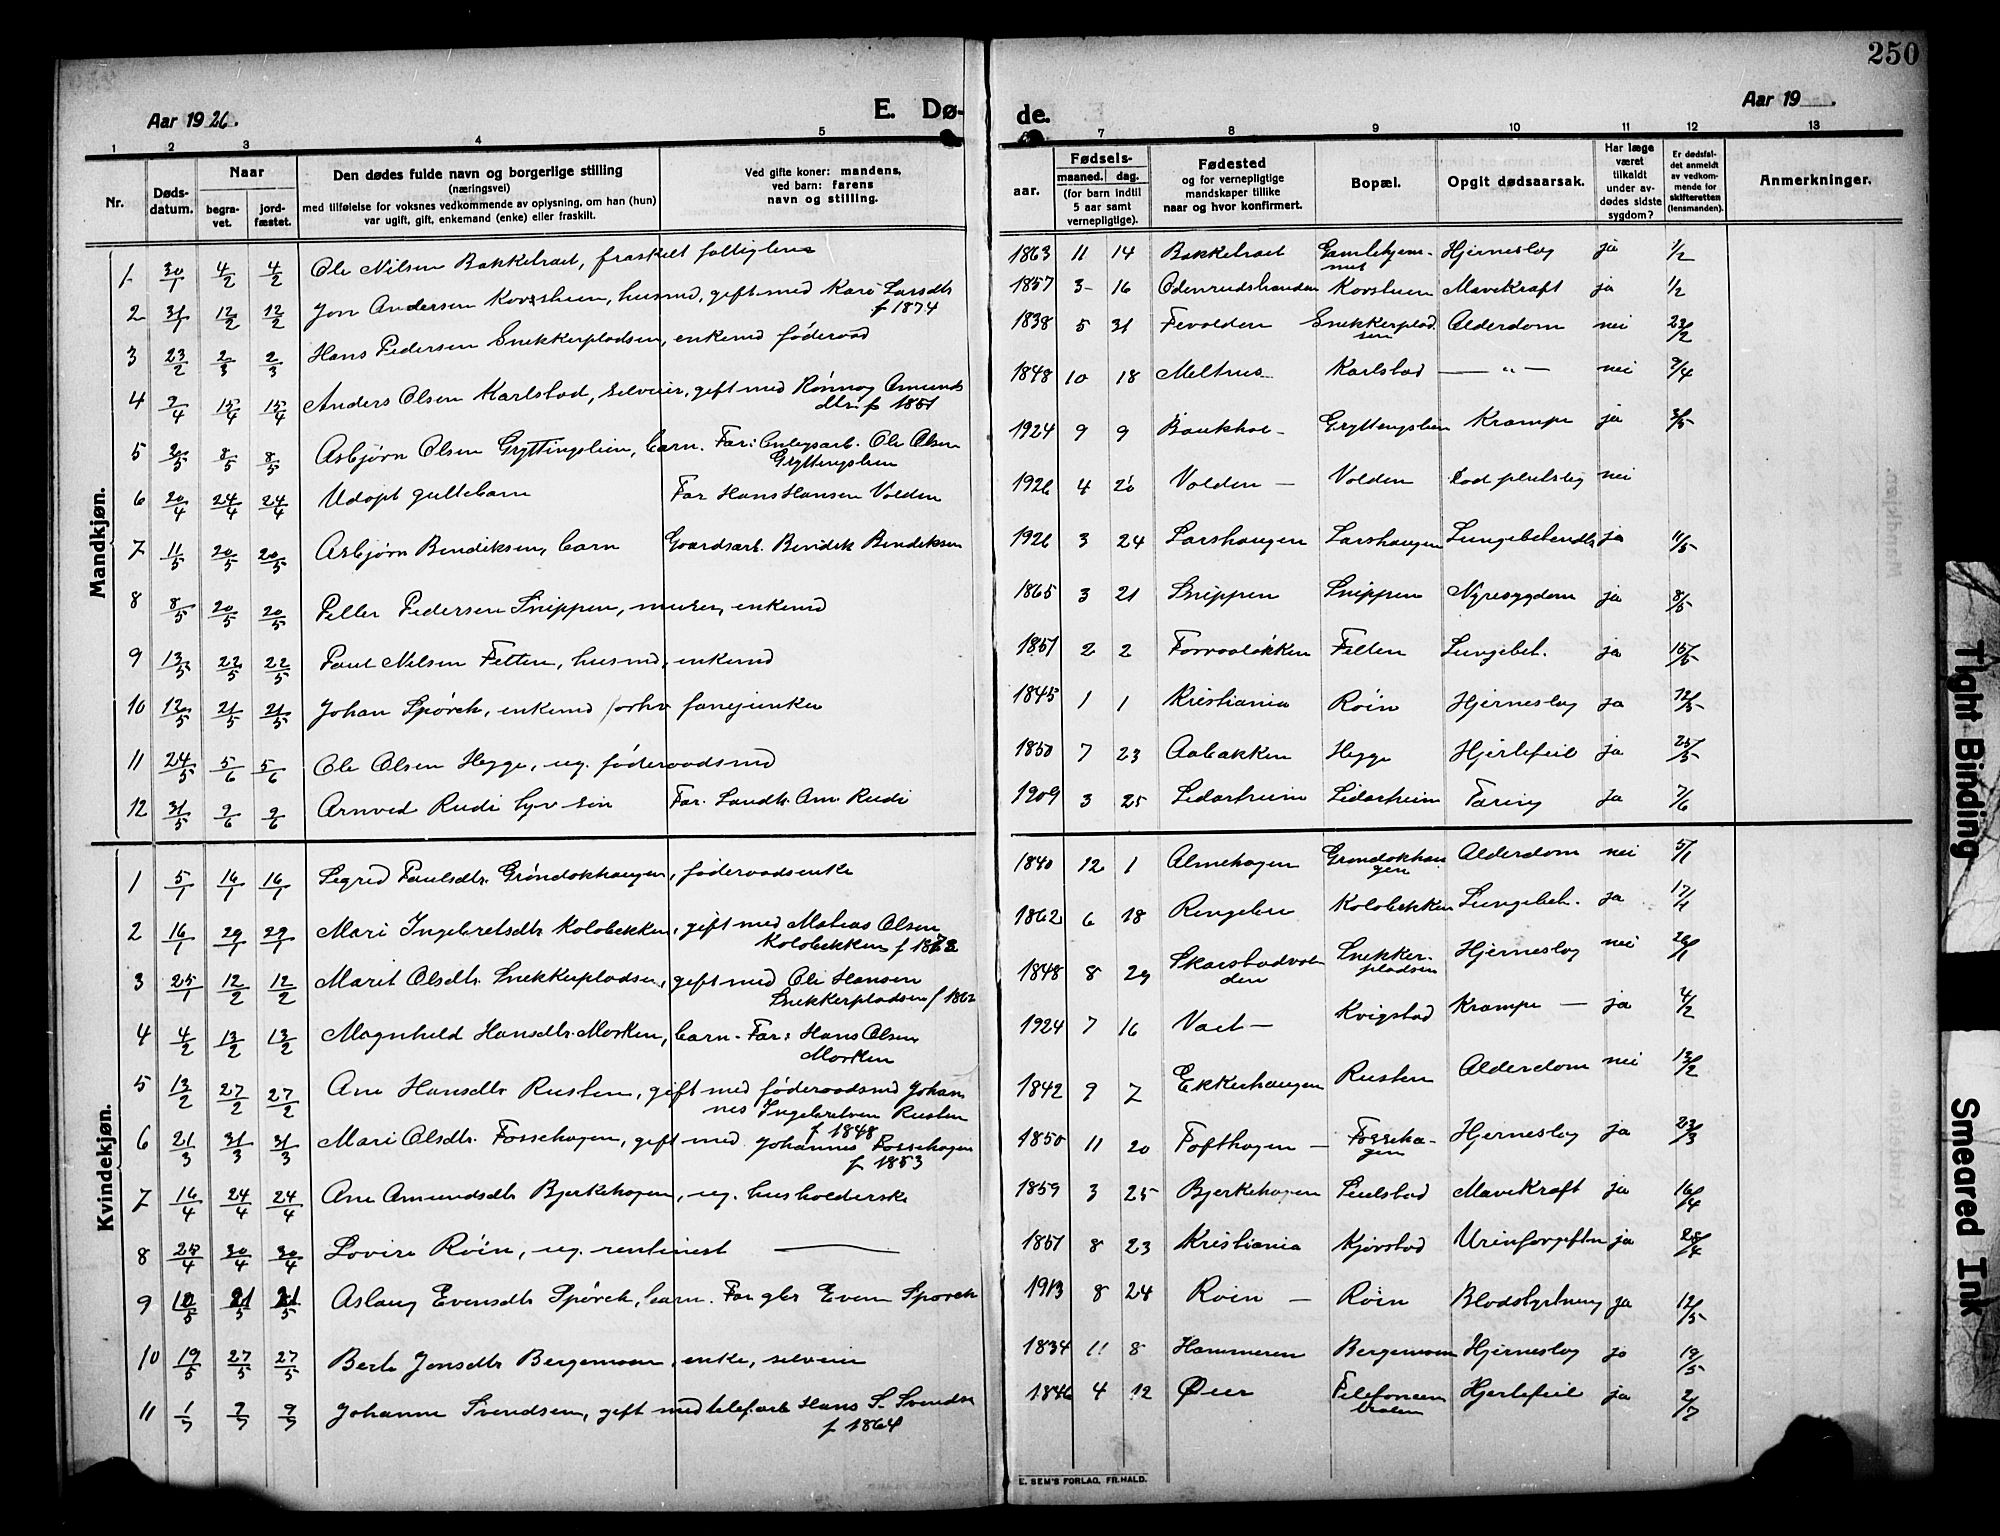 250
Aar 1926.
E. Dø-
de.
Aar 19
1 2 3 4 5 7 8 9 10 11 12 13
Nr.
Døds-
datum.
Naar
begra-
vet.
jord-
fæstet.
Den dødes fulde navn og borgerlige stilling
(næringsvei)
med tilføielse for voksnes vedkommende av oplysning, om han (hun)
var ugift, gift, enkemand (enke) eller fraskilt.
Ved gifte koner: mandens,
ved barn: farens
navn og stilling.
aar.
Fødsels-
maaned. dag.
(for barn indtil
5 aar samt
vernepligtige).
Fødested
og for vernepligtige
mandskaper tillike
naar og hvor konfirmert.
Bopæl.
Opgit dødsaarsak.
Har læge
været
tilkaldt
under av-
dødes sidste
sygdom?
Er dødsfal-
det anmeldt
av vedkom-
mende for
skifteretten
(lensmanden).
Anmerkninger.
Mandkjøn.
1 30/1 4/2 4/2 Ole Nilsen Bakketraet, fraskilt fattiglem 1863 11 14 Bakketraet Gamlehjem-
met Hjerneslag ja 1/2
2 31/1 12/2 12/2 Jon Andersen Korsheim, husmd, gift med Kari Larsdtr
f 1874 1857 3 16 Korsheim Mavekraft ja 1/2
3 23/2 2/3 2/3 Hans Pedersen Snekkerpladsen, enkemd føderaad 1838 5 31 Fevolden Snekkerplad
sen Alderdom nei 23/2
4 9/4 15/4 15/4 Anders Olsen Karlstad, selveier, gift med Rønnog Amunds
dtr. f 1851 1848 10 18 Meltrus Karlstad — " — nei 9/4
5 30/5 8/5 8/5 Asbjørn Olsen Gryttingslien, barn. Far: Anlegsarb. Ole Olsen
Gryttingslien 1924 9 9 Gryttingslien Krampe ja 3/5
6 20/4 24/4 24/4 Udøpt guttebarn Far Hans Hansen Volden 1926 4 20 Volden — Volden nei
7 11/5 20/5 20/5 Asbjørn Bendiksen, barn Gaardsarb. Bendik Bendiksen 1926 3 24 Larshaugen Larshaugen Lungebetendls ja 11/5
8 8/5 20/5 20/5 Petter Pedersen Snippen, murer, enkemd 1865 3 21 Snippen Snippen Nyresygdom ja 8/5
9 13/5 22/5 22/5 Paul Nilsen Fetten, husmd, enkemd 1851 2 2 Fetten Lungebet. ja 15/5
10 12/5 21/5 21/5 Johan Spørck, enkemd forhv fanejunker 1845 1 1 Kristiania Røin Hjerneslag ja 12/5
11 24/5 5/6 5/6 Ole Olsen Hegge, ug. føderaadsmd 1850 7 23 Aabakken Hegge Hjertefeil ja 25/5
12 31/5 9/6 9/6 Arnved Rudi Far. Landh. Am. Rudi 1909 3 25 Lidarheim Lidarheim Tæring ja 7/6
Kvindekjøn.
1 5/1 16/1 16/1 Sigrid Paulsdtr. Grøndokhaugen, føderaadsenke 1840 12 1 Almehagen Grøndokhau
gen Alderdom nei 5/1
2 16/1 29/1 29/1 Mari Ingebretsdtr Kolobekken, gift med Mathias Olsen
Kolobekken f 1862 6 18 Ringebu Kolobekken Lungebet. ja 17/1
3 25/1 12/2 12/2 Marit Olsdtr. Snekkerpladsen, gift med Ole Hansen
Snekkerpladsen f 1862 1848 8 29 Skarstadvol
den Snekker-
pladsen Hjerneslag nei 26/1
4 4/2 13/2 13/2 Magnhild Hansdtr. Morken, barn. Far: Hans Olsen
Morken 1924 7 16 Vaet — Kvigstad Krampe — ja 4/2
5 13/2 27/2 27/2 Ane Hansdtr Rusten, gift med føderaadsmd Johan
nes Ingebretsen Rusten
f 1848 1842 9 7 Ekkerhaugen Rusten Alderdom nei 13/2
6 21/3 31/3 31/3 Mari Olsdtr. Fossehagen, gift med Johannes Fossehagen
f 1853 1850 11 20 Tofthagen — Fosseha-
gen Hjerneslag ja 23/3
7 16/4 24/4 24/4 Ane Amundsdtr Bjerkehagen, ug. husholderske 1859 3 25 Bjerkehagen Mavekraft ja 16/4
8 25/4 30/4 30/4 Lovise Røin, ug. rentenist — 1851 8 23 Kristiania Kjørstad Urinforgiftn ja 28/4
9 12/5 21/5 21/5 Aslaug Evensdtr Spørck, barn. Far gbr Even Spørck 1913 8 24 Røin — Røin Blodstyrtning ja 12/5
10 19/5 27/5 27/5 Berte Jonsdtr Bergemoen, enke, selveier 1834 11 8 Hammeren Bergemoen Hjerneslag ja 19/5
11 1/7 9/7 9/7 Johanne Svendsen, gift med telefarb Hans S. Svends
f 1864 1846 4 12 Øier Telefoncen
tralen Hjertefeil ja 2/7
E. SEM'S FORLAG, FR.HALD.
Tight Binding
Smeared Ink